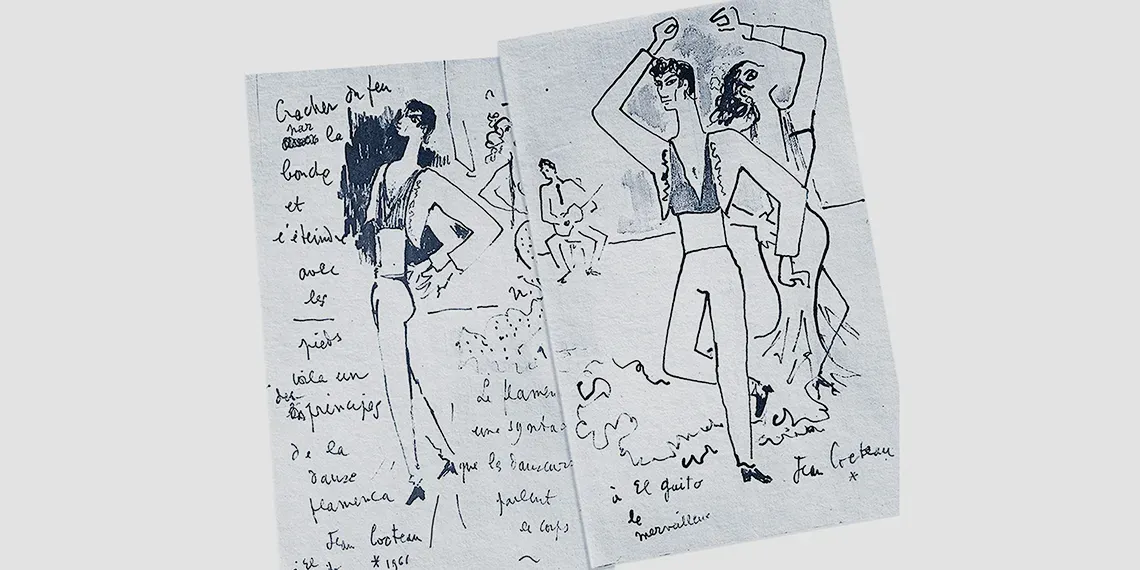 Cracher du feu
par la
bouche
et
l'éteindre
avec
les
pieds
voilà un
des principes
de la
danse
flamenca
Jean Cocteau
* 1961
Le flamen
une syntax
que les danseurs
parlent
le corps
à El Guito
le
merveilleux
Jean Cocteau
*